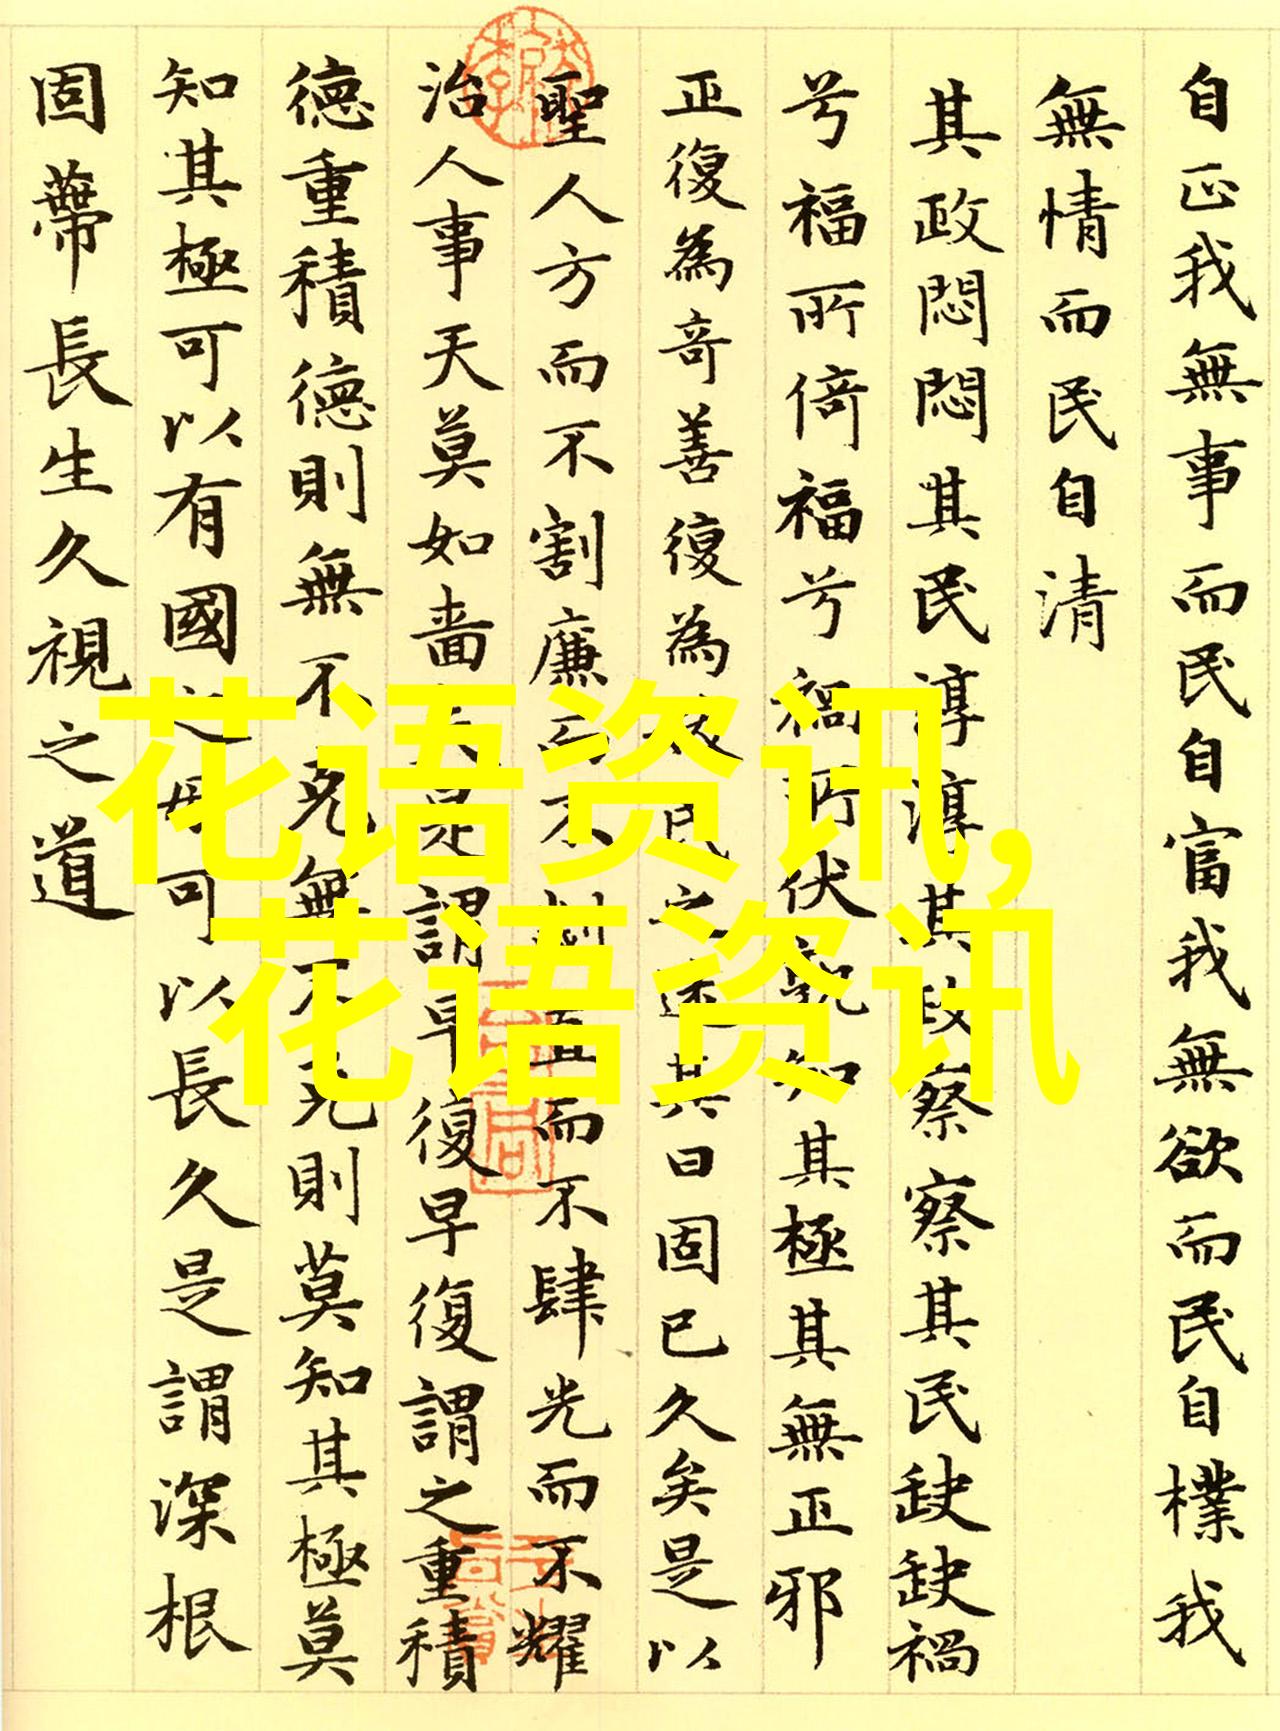 自正我無事而民自富我無欲而民自樸我
無情而民自清
其政悶悶其民淳淳其政察察其民缺缺禍
兮福所倚福兮禍所伏孰知其極其無正邪
正復為奇善復為民之迷其日固已久矣是以
聖人方而不割廉而不劌直而不肆光而不耀
治人事天莫如嗇夫是謂早復早復謂之重積
德重積德則無不克無不克則莫知其極莫
知其極可以有國之母可以長久是謂深根
固蒂長生久視之道
花语资讯,
花语资讯